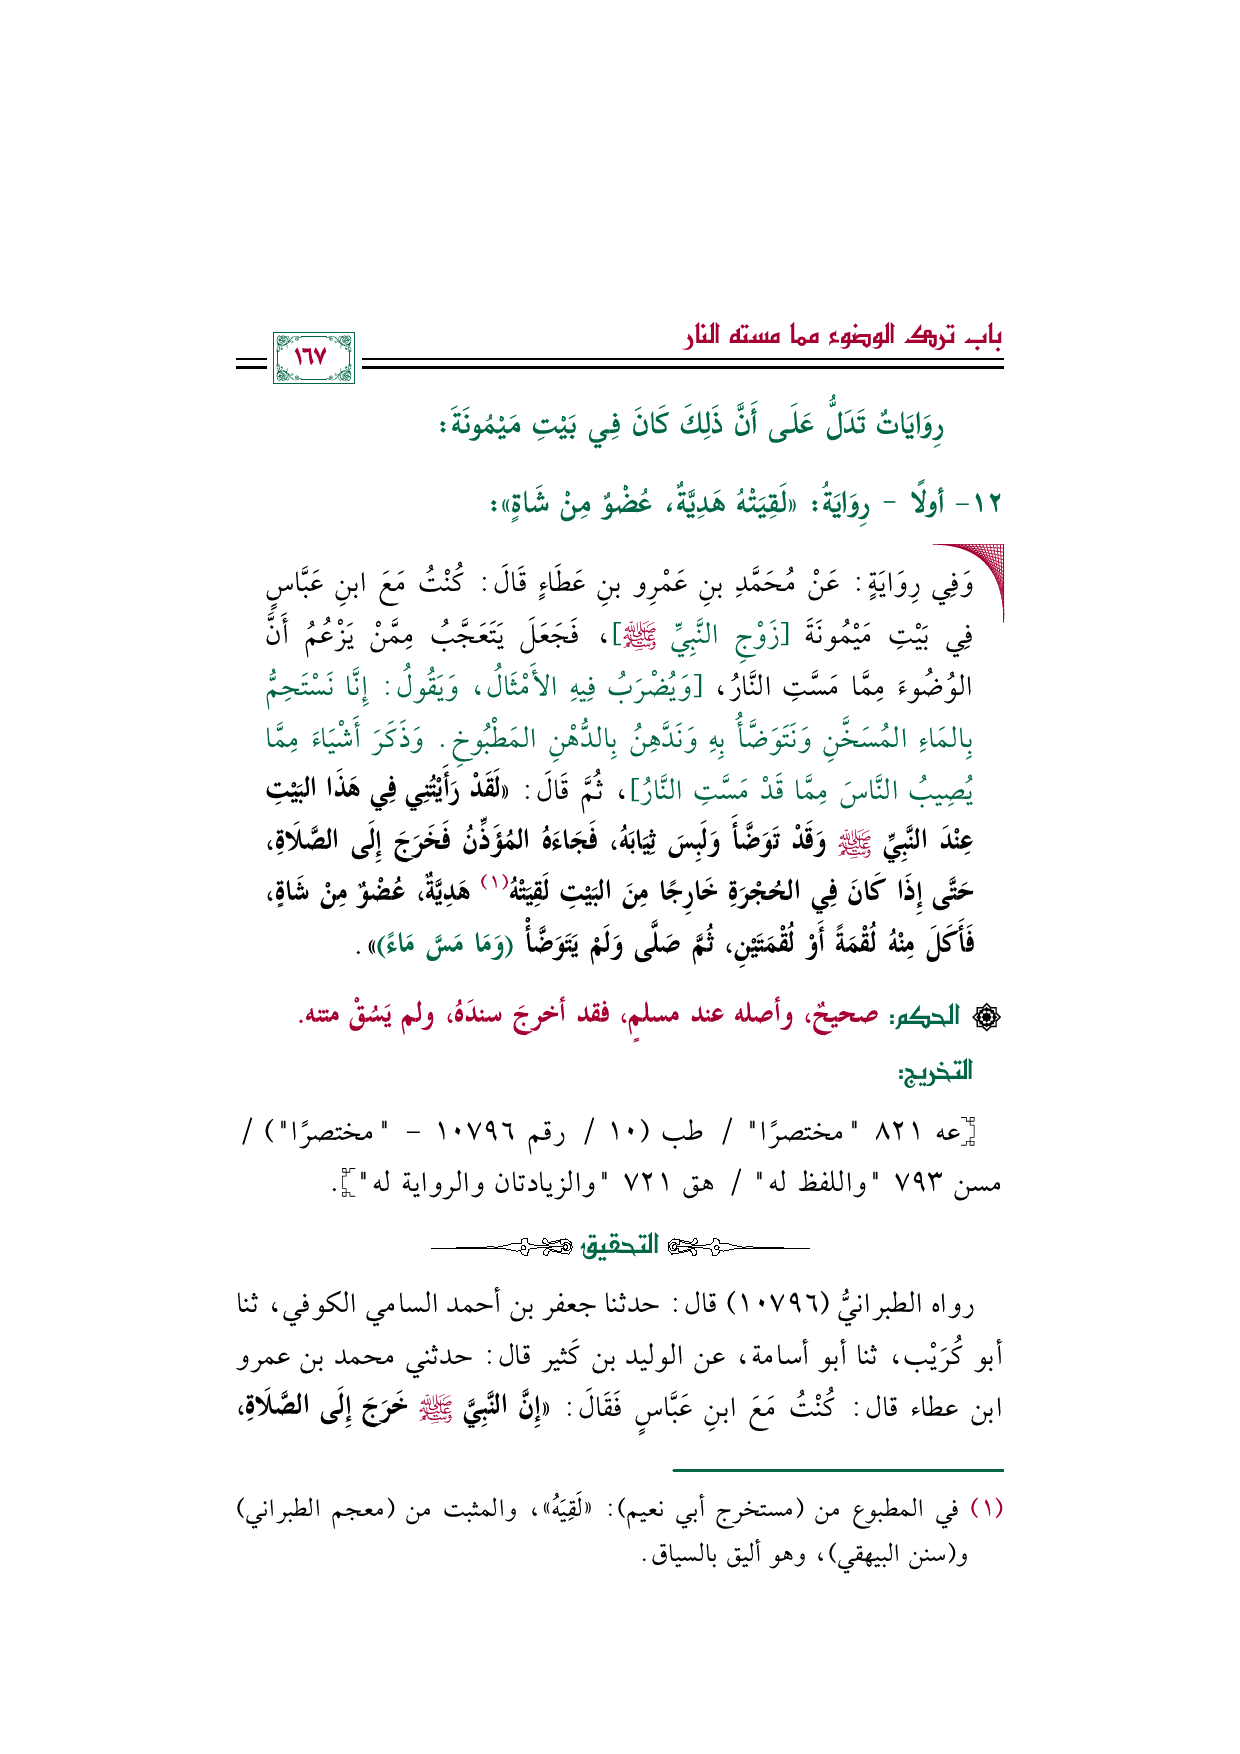 باب ترك الوضوء مما مسته النار
١٦٧
رِوَايَاتٌ تَدَلُّ عَلَى أَنَّ ذَلِكَ كَانَ فِي بَيْتِ مَيْمُونَةَ:
١٢- أولًا - رِوَايَةُ: «لَقِيَتْهُ هَدِيَّةٌ، عُضْوٌ مِنْ شَاةٍ»:
وَفِي رِوَايَةٍ: عَنْ مُحَمَّدِ بنِ عَمْرِو بنِ عَطَاءٍ قَالَ: كُنْتُ مَعَ ابنِ عَبَّاسٍ
فِي بَيْتِ مَيْمُونَةَ [زَوْجِ النَّبِيِّ ﷺ]، فَجَعَلَ يَتَعَجَّبُ مِمَّنْ يَزْعُمُ أَنَّ
الوُضُوءَ مِمَّا مَسَّتِ النَّارُ، [وَيُضْرَبُ فِيهِ الأَمْثَالُ، وَيَقُولُ: إِنَّا نَسْتَحِمُّ
بِالمَاءِ المُسَخَّنِ وَنَتَوَضَّأُ بِهِ وَنَدَّهِنُ بِالدُّهْنِ المَطْبُوخِ. وَذَكَرَ أَشْيَاءَ مِمَّا
يُصِيبُ النَّاسَ مِمَّا قَدْ مَسَّتِ النَّارُ]، ثُمَّ قَالَ: «لَقَدْ رَأَيْتُنِي فِي هَذَا البَيْتِ
عِنْدَ النَّبِيِّ ﷺ وَقَدْ تَوَضَّأَ وَلَبِسَ ثِيَابَهُ، فَجَاءَهُ المُؤَذِّنُ فَخَرَجَ إِلَى الصَّلَاةِ،
حَتَّى إِذَا كَانَ فِي الحُجْرَةِ خَارِجًا مِنَ البَيْتِ لَقِيَتْهُ(١) هَدِيَّةٌ، عُضْوٌ مِنْ شَاةٍ،
فَأَكَلَ مِنْهُ لُقْمَةً أَوْ لُقْمَتَيْنِ، ثُمَّ صَلَّى وَلَمْ يَتَوَضَّأْ (وَمَا مَسَّ مَاءً)».
الحكم: صحيحٌ، وأصله عند مسلمٍ، فقد أخرجَ سندَهُ، ولم يَسُقْ متنه.
التخريج:
[عه ٨٢١ "مختصرًا" / طب (١٠ / رقم ١٠٧٩٦ - "مختصرًا") /
مسن ٧٩٣ "واللفظ له" / هق ٧٢١ "والزيادتان والرواية له"].
التحقيق
رواه الطبرانيُّ (١٠٧٩٦) قال: حدثنا جعفر بن أحمد السامي الكوفي، ثنا
أبو كُرَيْب، ثنا أبو أسامة، عن الوليد بن كَثير قال: حدثني محمد بن عمرو
ابن عطاء قال: كُنْتُ مَعَ ابنِ عَبَّاسٍ فَقَالَ: «إِنَّ النَّبِيَّ ﷺ خَرَجَ إِلَى الصَّلَاةِ،
(١) في المطبوع من (مستخرج أبي نعيم): «لَقِيَهُ»، والمثبت من (معجم الطبراني)
و(سنن البيهقي)، وهو أليق بالسياق.